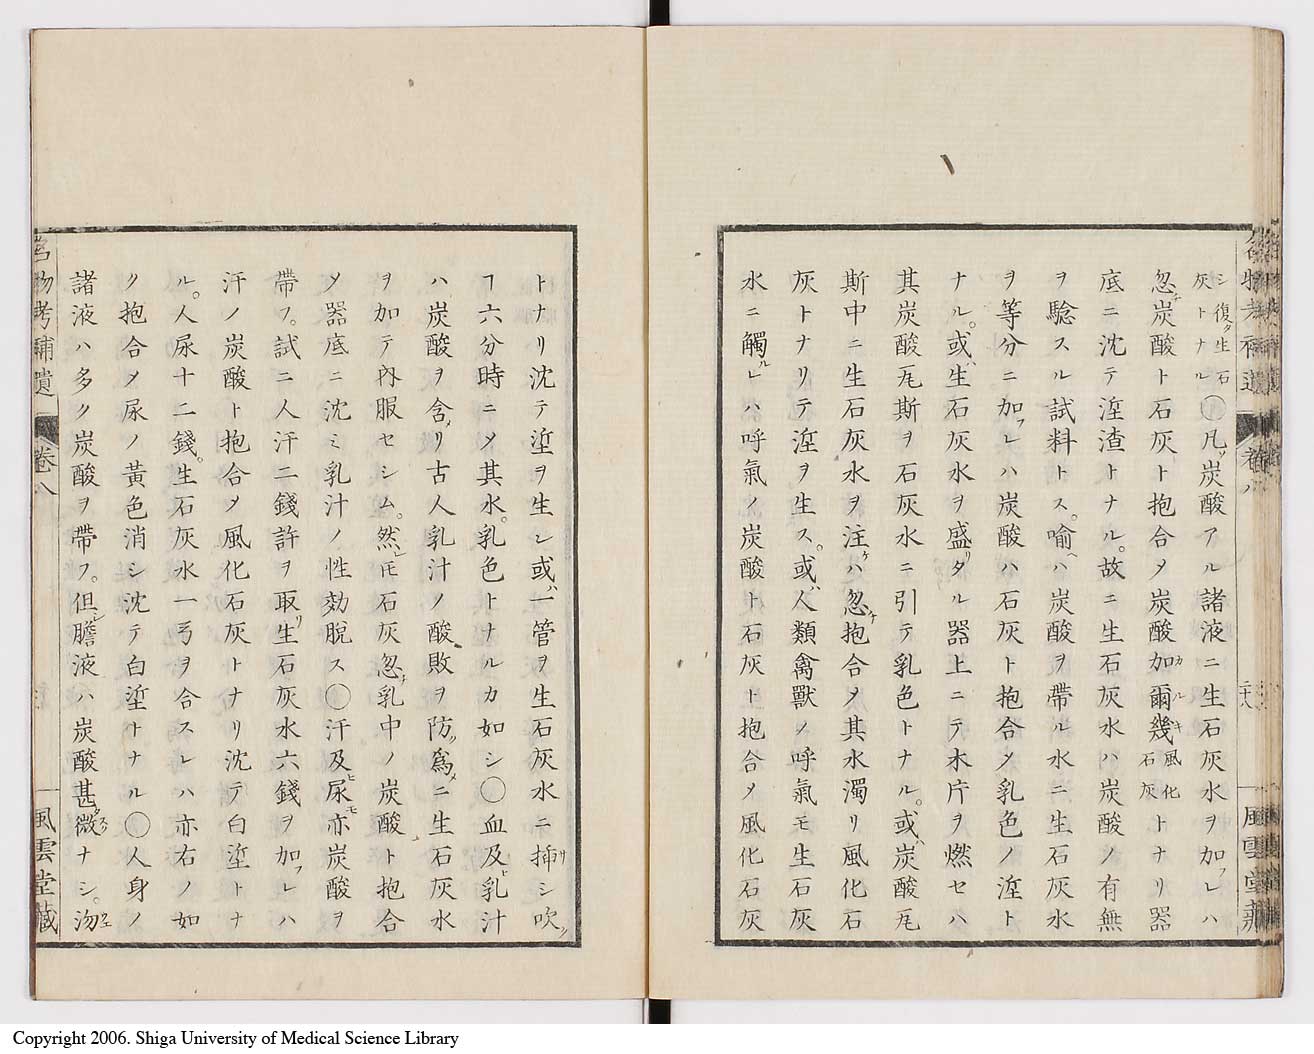 シ復タ生石
灰トナル
〇凡ソ炭酸アル諸液ニ生石灰水ヲ加フレハ
忽チ炭酸ト石灰ト抱合メ炭酸加爾幾風化石灰トナリ器
カルキ
底ニ沈テ滓渣トナル。故ニ生石灰水ハ炭酸ノ有無
ヲ驗スル試料トス。喻ヘハ炭酸ヲ帶ル水ニ生石灰水
ヲ等分ニ加フレハ炭酸ハ石灰ト抱合メ乳色ノ滓ト
ナル。或ハ生石灰水ヲ盛リタル器上ニテ木片ヲ燃セハ
其炭酸瓦斯ヲ石灰水ニ引テ乳色トナル。或ハ炭酸瓦
斯中ニ生石灰水ヲ注ケハ忽チ抱合メ其水濁リ風化石
灰トナリテ滓ヲ生ス。或ハ人類禽獸ノ呼氣モ生石灰
水ニ觸ルレハ呼氣ノ炭酸ト石灰ト抱合メ風化石灰
トナリ沈テ埿ヲ生シ或ハ一管ヲ生石灰水ニ揷リシ吹ソ
ヿ六分時ニメ其水。乳色トナルカ如シ〇血及ヒ乳汁
ハ炭酸ヲ含メリ古人乳汁ノ酸敗ヲ防ソ爲メニ生石灰水
ヲ加テ內服セシム。然レモ石灰忽チ乳中ノ炭酸ト抱合
メ器底ニ沈ミ乳汁ノ性効脫ス〇汗及ヒ尿モ亦炭酸ヲ
帶フ。試ニ人汗二錢許ヲ取リ生石灰水六錢ヲ加フレハ
汗ノ炭酸ト抱合メ風化石灰トナリ沈テ白埿トナ
ル。人尿十二錢。生石灰水一弓ヲ合スレハ亦右ノ如
ク抱合メ尿ノ黃色消シ沈テ白埿トナル〇人身ノ
諸液ハ多ク炭酸ヲ帶フ。但シ膽液ハ炭酸甚タ微スクナシ。沕ユエ
名物考補遺 卷八 風雲堂藏
Copyright 2006. Shiga University of Medical Science Library